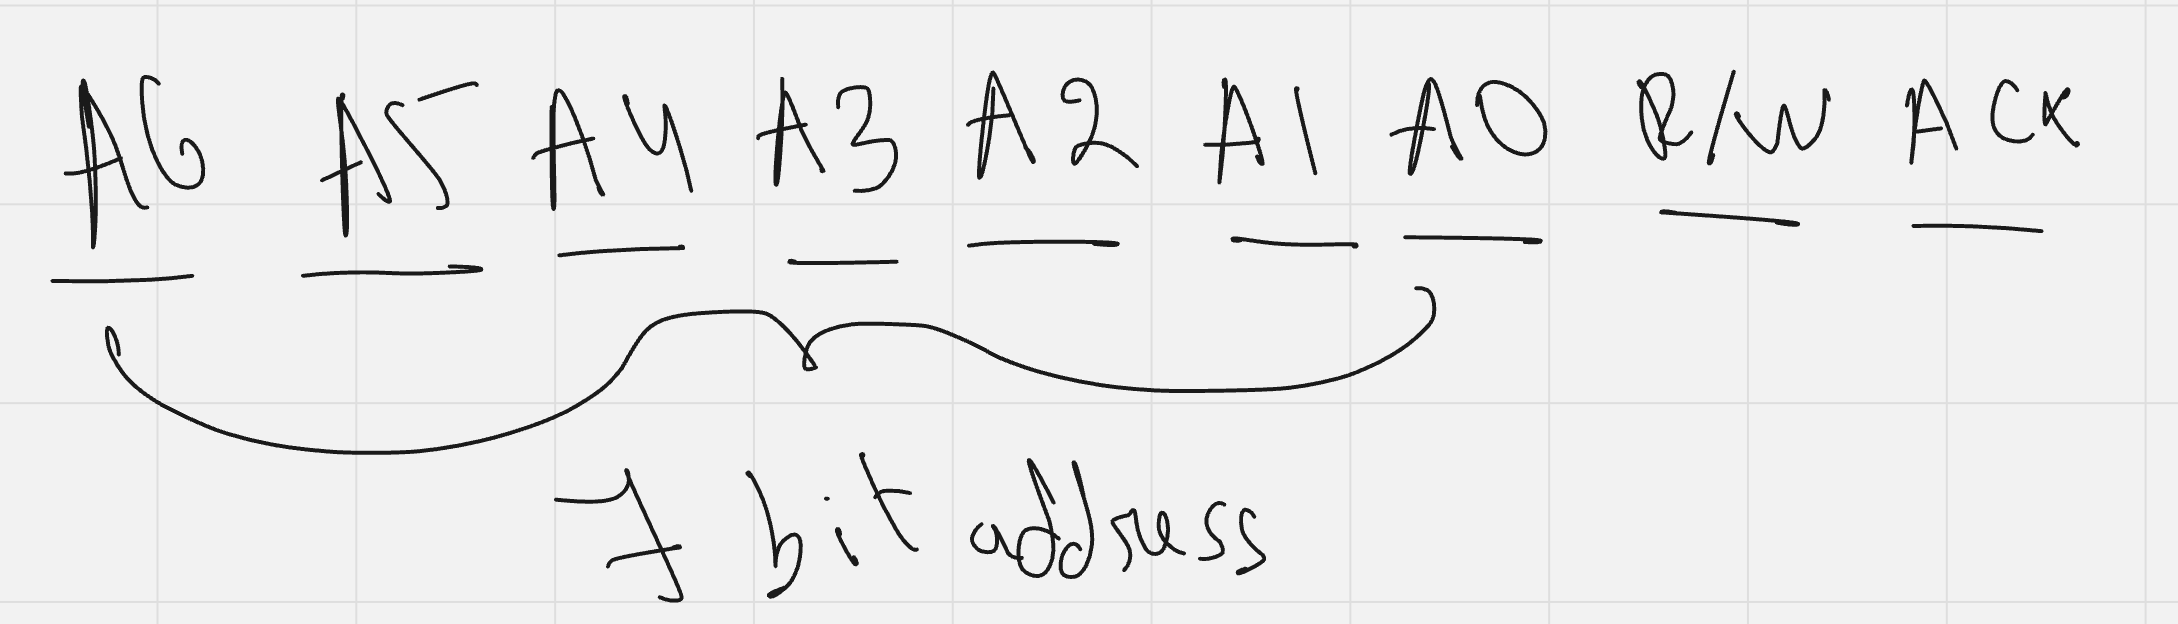 A6 A5 A4 A3 A2 A1 A0 R/W ACK
7 bit address